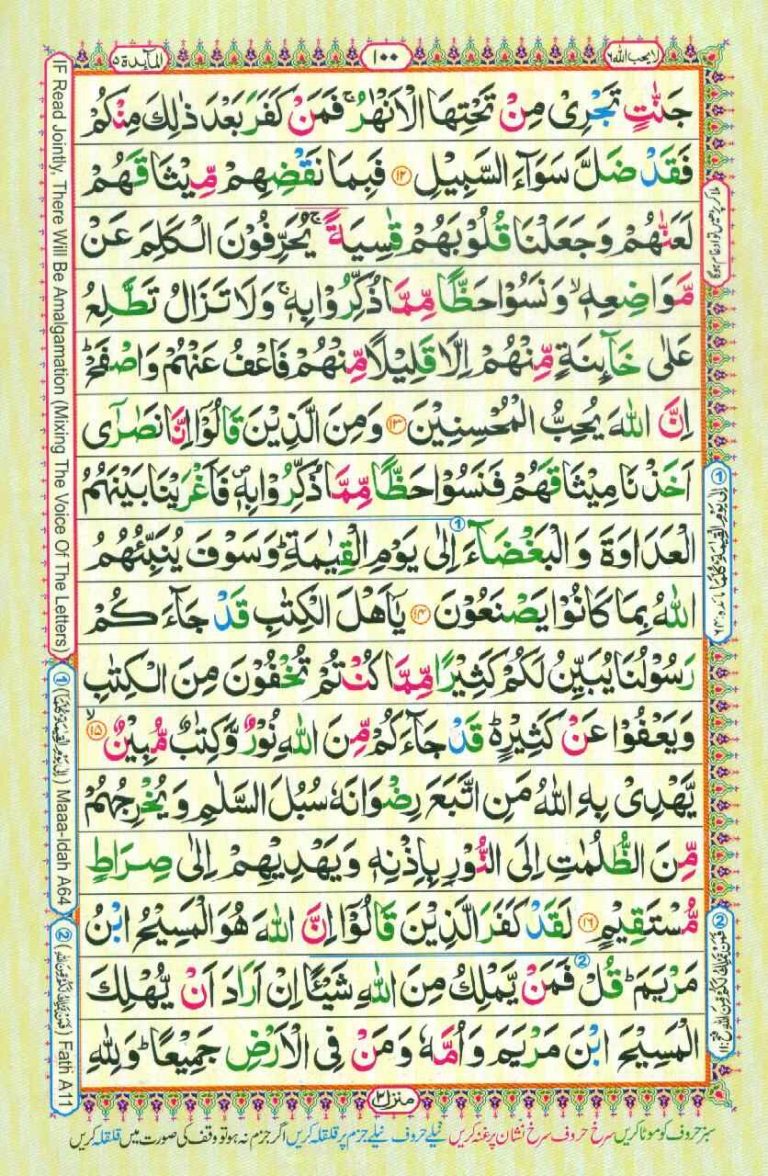 لا يحب الله ٦
١٠٠
المآئدة ٥
جَنّٰتٍ تَجْرِىْ مِنْ تَحْتِهَا الْاَنْهٰرُ ۚ فَمَنْ كَفَرَ بَعْدَ ذٰلِكَ مِنْكُمْ
فَقَدْ ضَلَّ سَوَآءَ السَّبِيْلِ ﴿۱۲﴾ فَبِمَا نَقْضِهِمْ مِّيْثَاقَهُمْ
لَعَنّٰهُمْ وَجَعَلْنَا قُلُوْبَهُمْ قٰسِيَةً ۚ يُحَرِّفُوْنَ الْكَلِمَ عَنْ
مَّوَاضِعِهٖ ۙ وَنَسُوْا حَظًّا مِّمَّا ذُكِّرُوْا بِهٖ ۚ وَلَا تَزَالُ تَطَّلِعُ
عَلٰى خَآئِنَةٍ مِّنْهُمْ اِلَّا قَلِيْلًا مِّنْهُمْ فَاعْفُ عَنْهُمْ وَاصْفَحْ ؕ
اِنَّ اللّٰهَ يُحِبُّ الْمُحْسِنِيْنَ ﴿۱۳﴾ وَمِنَ الَّذِيْنَ قَالُوْۤا اِنَّا نَصٰرٰٓى
اَخَذْنَا مِيْثَاقَهُمْ فَنَسُوْا حَظًّا مِّمَّا ذُكِّرُوْا بِهٖ ۪ فَاَغْرَيْنَا بَيْنَهُمُ
الْعَدَاوَةَ وَالْبَغْضَآءَ اِلٰى يَوْمِ الْقِيٰمَةِ ؕ وَسَوْفَ يُنَبِّئُهُمُ
اللّٰهُ بِمَا كَانُوْا يَصْنَعُوْنَ ﴿۱۴﴾ يٰۤاَهْلَ الْكِتٰبِ قَدْ جَآءَكُمْ
رَسُوْلُنَا يُبَيِّنُ لَكُمْ كَثِيْرًا مِّمَّا كُنْتُمْ تُخْفُوْنَ مِنَ الْكِتٰبِ
وَيَعْفُوْا عَنْ كَثِيْرٍ ؕ قَدْ جَآءَكُمْ مِّنَ اللّٰهِ نُوْرٌ وَّكِتٰبٌ مُّبِيْنٌ ۙ﴿۱۵﴾
يَّهْدِىْ بِهِ اللّٰهُ مَنِ اتَّبَعَ رِضْوَانَهٗ سُبُلَ السَّلٰمِ وَيُخْرِجُهُمْ
مِّنَ الظُّلُمٰتِ اِلَى النُّوْرِ بِاِذْنِهٖ وَيَهْدِيْهِمْ اِلٰى صِرَاطٍ
مُّسْتَقِيْمٍ ﴿۱۶﴾ لَقَدْ كَفَرَ الَّذِيْنَ قَالُوْۤا اِنَّ اللّٰهَ هُوَ الْمَسِيْحُ ابْنُ
مَرْيَمَ ؕ قُلْ فَمَنْ يَّمْلِكُ مِنَ اللّٰهِ شَيْـًٔا اِنْ اَرَادَ اَنْ يُّهْلِكَ
الْمَسِيْحَ ابْنَ مَرْيَمَ وَاُمَّهٗ وَمَنْ فِى الْاَرْضِ جَمِيْعًا ؕ وَلِلّٰهِ
منزل ٢
سبز حروف کو موٹا کریں سرخ حروف سرخ نشان پر غنہ کریں نیلے حروف نیلے جزم پر قلقلہ کریں اگر جزم نہ ہو تو وقف کی صورت میں قلقلہ کریں
IF Read Jointly, There Will Be Amalgamation (Mixing The Voice Of The Letters)
① (اِلٰى يَوْمِ الْقِيٰمَةِ كُلَّمَآ) Maaa-Idah A64
② (فَمَنْ يَّمْلِكُ لَكُمْ مِّنَ اللّٰهِ) Fath A11
ملا کر پڑھیں تو ادغام ہوگا
① اِلٰى يَوْمِ الْقِيٰمَةِ كُلَّمَآ مائدہ:٦٤
② فَمَنْ يَّمْلِكُ لَكُمْ مِّنَ اللّٰهِ فتح:١١